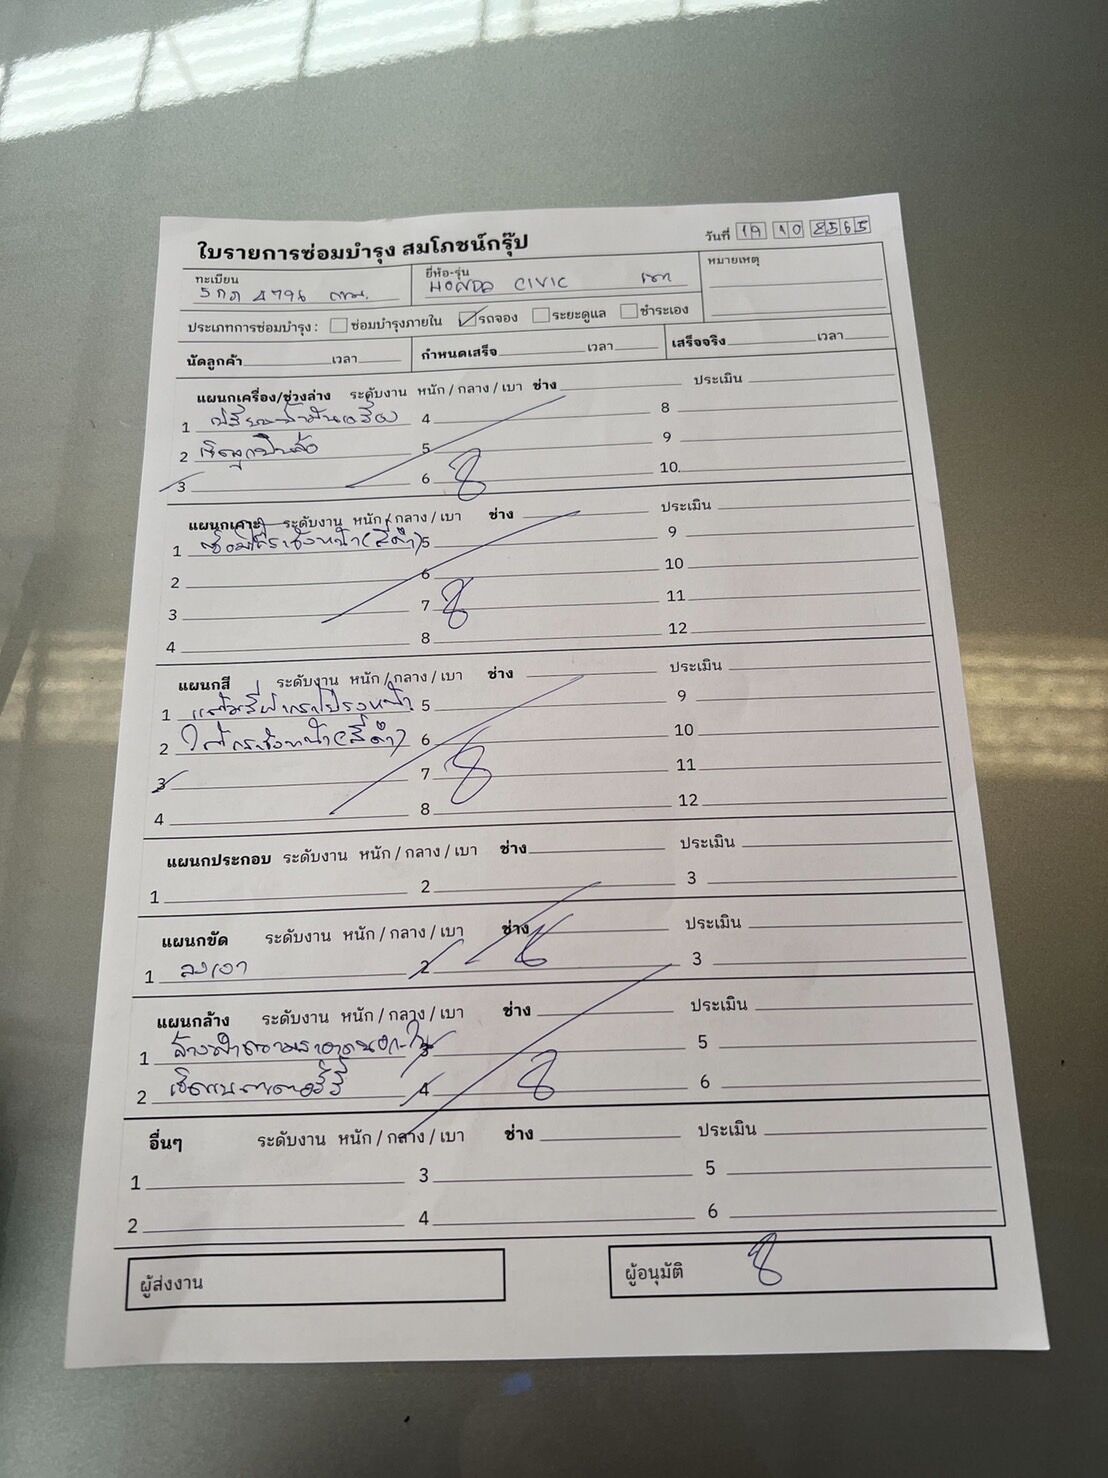 ใบรายการซ่อมบำรุง สมโภชน์กรุ๊ป
วันที่ 19 10 2565
ทะเบียน
5กภ 4796 กทม.
ยี่ห้อ-รุ่น
HONDA CIVIC เทา
หมายเหตุ
ประเภทการซ่อมบำรุง : ซ่อมบำรุงภายใน รถจอง ระยะดูแล ชำระเอง
นัดลูกค้า เวลา กำหนดเสร็จ เวลา เสร็จจริง เวลา
แผนกเครื่อง/ช่วงล่าง ระดับงาน หนัก / กลาง / เบา ช่าง ประเมิน
1 เปลี่ยนน้ำมันเครื่อง 4 8
2 5 9
3 6 10
แผนกเคาะ ระดับงาน หนัก / กลาง / เบา ช่าง ประเมิน
1 (สีดำ) 5 9
2 6 10
3 7 11
4 8 12
แผนกสี ระดับงาน หนัก / กลาง / เบา ช่าง ประเมิน
1 แต้มสีฝากระโปรงหน้า 5 9
2 (สีดำ) 6 10
3 7 11
4 8 12
แผนกประกอบ ระดับงาน หนัก / กลาง / เบา ช่าง ประเมิน
1 2 3
แผนกขัด ระดับงาน หนัก / กลาง / เบา ช่าง ประเมิน
1 ลงเงา 2 3
แผนกล้าง ระดับงาน หนัก / กลาง / เบา ช่าง ประเมิน
1 ล้างทำความสะอาดนอก-ใน 3 5
2 เช็คแบตเตอรี่ 4 6
อื่นๆ ระดับงาน หนัก / กลาง / เบา ช่าง ประเมิน
1 3 5
2 4 6
ผู้ส่งงาน
ผู้อนุมัติ